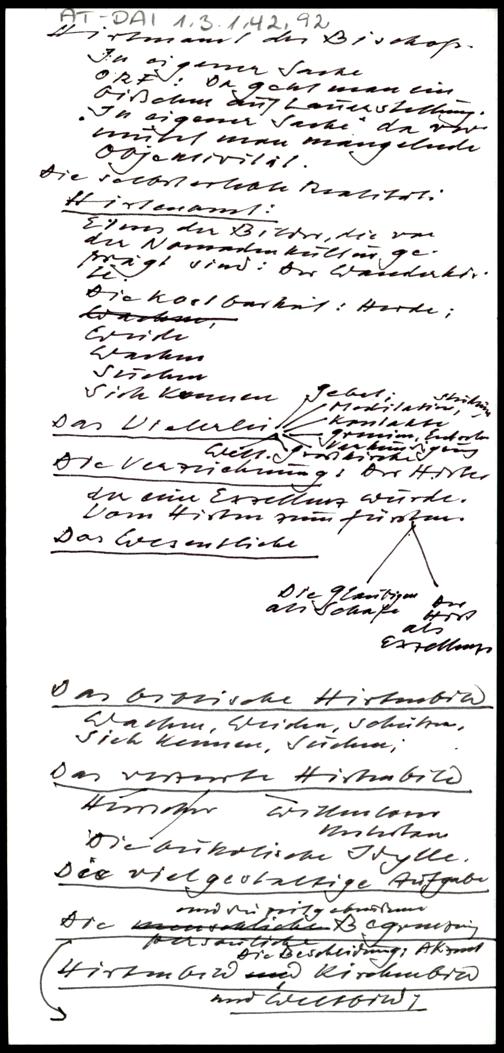 AT-DAI 1.3.1.42.92
Hirtenamt des Bischofs.
In eigener Sache
ORF: Da geht man ein
bißchen auf Lauerstellung.
"In eigener Sache" da ver-
mutet man mangelnde
Objektivität.
Die selbsterlebte Realität:
Hirtenamt:
Eines der Bilder, die von
der Nomadenkultur ge-
prägt sind: Der Wanderhir-
te.
Die Kostbarkeit: Herde;
Wachen,
Weide
Wachen
Suchen
Sich Kennen
Das Vielerlei
Gebet;
Meditation,
Kontakte
Gremien,
Verkündigung
Welt.
Die Verzeichnung: Der Hirte
der eine Exzellenz wurde.
Vom Hirten zum Fürsten.
Das Wesentliche
Die Gläubigen
als Schafe
Der
Hirt
als
Exzellenz
Das biblische Hirtenbild
Wachen, Weiden, Schützen,
Sich Kennen, Suchen;
Das verzerrte Hirtenbild
Herrscher
Die bukolische Idylle.
Die vielgestaltige Aufgabe
Die menschlichen Begrenzung
persönliche
Die Bescheidung: Akzent
Hirtenbild und Kirchenbild
und Weltbild;